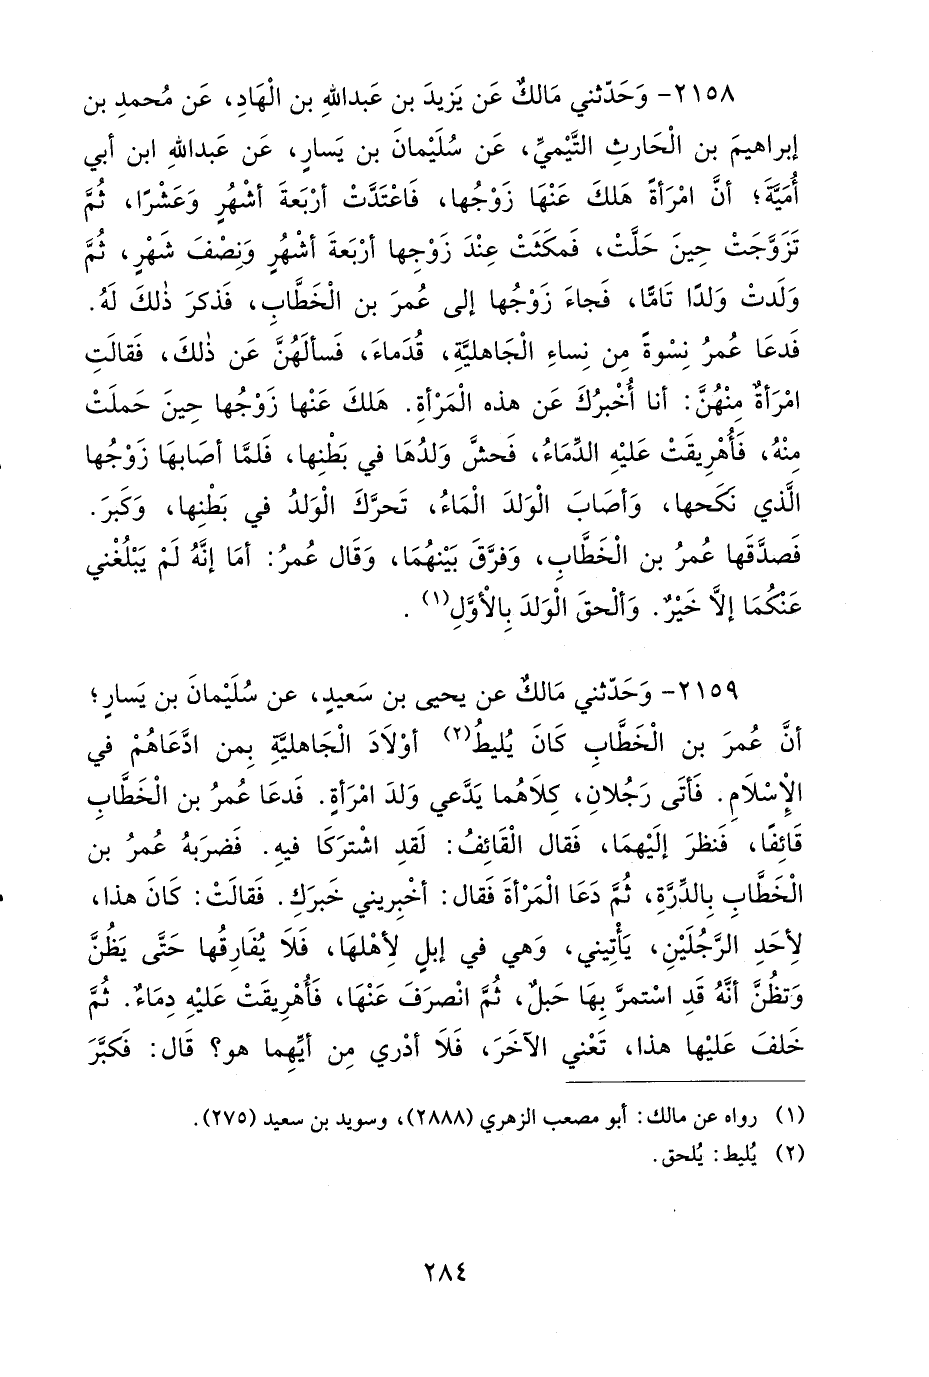 ٢١٥٨- وَحَدّثني مَالكٌ عَن يَزيدَ بن عَبداللهِ بن الْهَادِ، عَن مُحمدِ بن
إبراهيمَ بن الْحَارثِ التَّيْميِّ، عَن سُلَيْمانَ بن يَسارٍ، عَن عَبداللهِ ابن أبي
أُمَيَّةَ؛ أنَّ امْرَأةً هَلكَ عَنْهَا زَوْجُها، فَاعْتَدَّتْ أرْبَعةَ أشْهُرٍ وَعَشْرًا، ثُمَّ
تَزَوَّجَتْ حِينَ حَلَّتْ، فَمكَثَتْ عِنْدَ زَوْجِها أرْبَعةَ أشْهُرٍ وَنِصْفَ شَهْرٍ، ثُمَّ
وَلَدتْ وَلدًا تَامًّا، فَجاءَ زَوْجُها إلى عُمرَ بن الْخَطَّابِ، فَذكرَ ذٰلكَ لَهُ.
فَدعَا عُمرُ نِسْوةً مِن نِساءِ الْجَاهليَّةِ، قُدَماءَ، فَسألَهُنَّ عَن ذٰلكَ، فَقالَتِ
امْرَأةٌ مِنْهُنَّ: أنا أُخْبرُكَ عَن هذه الْمَرْأةِ. هَلكَ عَنْها زَوْجُها حِينَ حَملَتْ
مِنْهُ، فَأُهْرِيقَتْ عَليْهِ الدِّمَاءُ، فَحشَّ وَلدُهَا في بَطْنِها، فَلمَّا أصَابهَا زَوْجُها
الَّذي نَكَحها، وَأصَابَ الْوَلدَ الْمَاءُ، تَحرَّكَ الْوَلدُ في بَطْنِها، وَكَبرَ.
فَصدَّقَها عُمرُ بن الْخَطَّابِ، وَفرَّقَ بَيْنهُمَا، وَقَال عُمرُ: أمَا إنَّهُ لَمْ يَبْلُغْني
عَنْكُمَا إلاَّ خَيْرٌ. وَألْحقَ الْوَلدَ بِالْأوَّلِ(١) .
٢١٥٩- وَحَدّثني مَالكٌ عن يحيى بن سَعيدٍ، عن سُلَيْمانَ بن يَسارٍ؛
أنَّ عُمرَ بن الْخَطَّابِ كَانَ يُليطُ(٢) أوْلَادَ الْجَاهليَّةِ بِمن ادَّعَاهُمْ في
الإِسْلَامِ. فَأتَى رَجُلانِ، كِلاَهُما يَدَّعي وَلدَ امْرَأةٍ. فَدعَا عُمرُ بن الْخَطَّابِ
قَائِفًا، فَنظرَ إلَيْهِمَا، فَقال الْقَائِفُ: لَقدِ اشْتَركَا فيهِ. فَضرَبهُ عُمرُ بن
الْخَطَّابِ بِالدِّرَّةِ، ثُمَّ دَعَا الْمَرْأةَ فَقال: أخْبِريني خَبرَكِ. فَقالَتْ: كَانَ هذا،
لِأحَدِ الرَّجُلَيْنِ، يَأْتِيني، وَهي في إبلٍ لِأهْلهَا، فَلَا يُفَارِقُها حَتَّى يَظُنَّ
وَتظُنَّ أنَّهُ قَدِ اسْتمرَّ بِهَا حَبلٌ، ثُمَّ انْصرَفَ عَنْهَا، فَأُهْرِيقَتْ عَليْهِ دِمَاءٌ. ثُمَّ
خَلفَ عَليْها هذا، تَعْني الآخَرَ، فَلَا أدْري مِن أيِّهِما هو؟ قَال: فَكبَّرَ
(١) رواه عن مالك: أبو مصعب الزهري (٢٨٨٨)، وسويد بن سعيد (٢٧٥).
(٢) يُليط: يُلحق.
٢٨٤